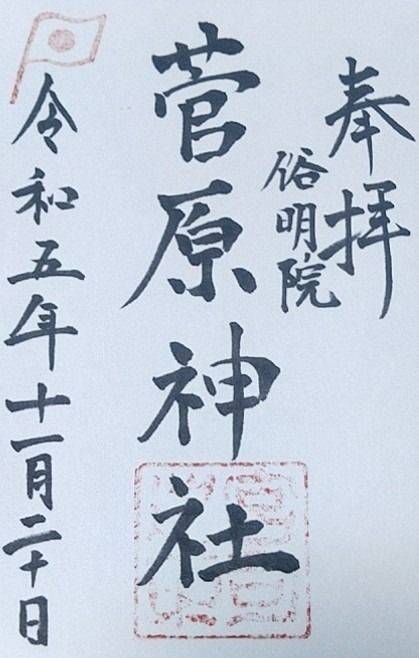 奉拝
俗明院
菅原神社
令和五年十一月二十日